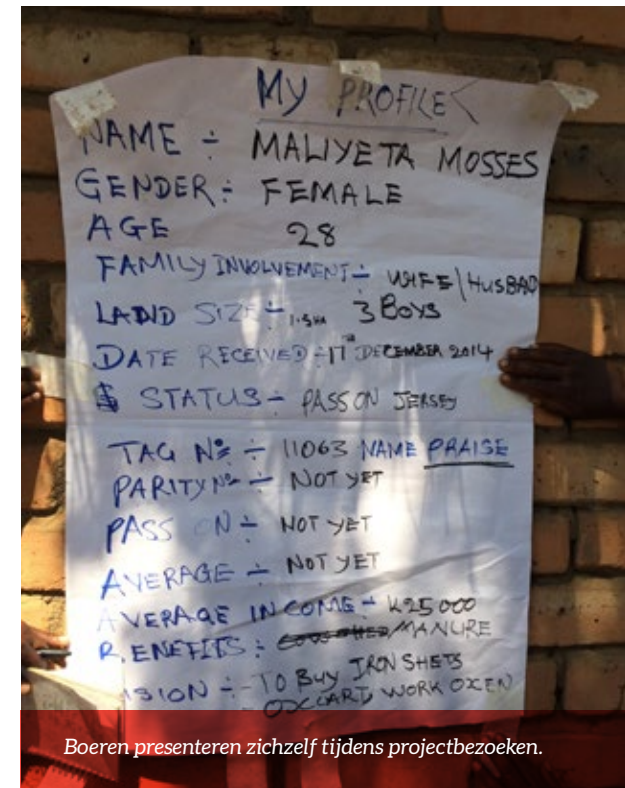 MY PROFILE
NAME ÷ MALIYETA MOSSES
GENDER ÷ FEMALE
AGE 28
FAMILY INVOLVEMENT ÷ WIFE/HUSBAD
LAND SIZE ÷ 1.5HA 3 BOYS
DATE RECEIVED ÷ 17th DECEMBER 2014
STATUS ÷ PASS ON JERSEY
TAG No ÷ 11063 NAME PRAISE
PARITY No ÷ NOT YET
PASS ON ÷ NOT YET
AVERAGE ÷ NOT YET
AVERAGE INCOME ÷ K25000
BENEFITS ÷ /MANURE
VISION ÷ - TO BUY IRON SHETS
- WORK OXEN
Boeren presenteren zichzelf tijdens projectbezoeken.